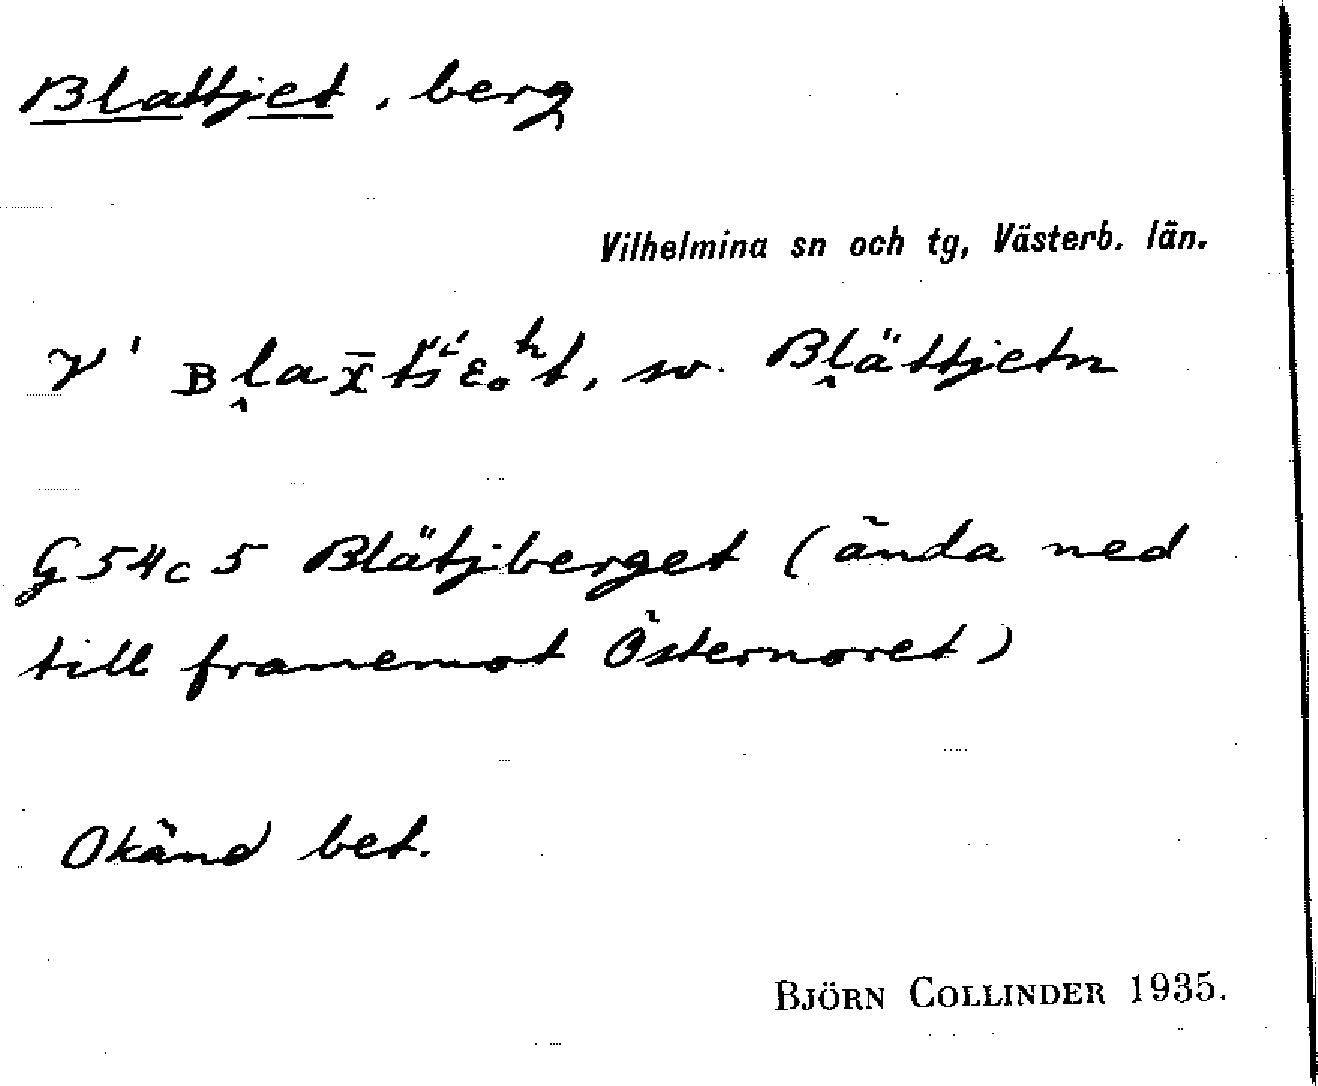 Blattjet, berg
Vilhelmina sn och tg, Västerb. län.
sv. Blättjetn
G 54 c 5 Blätjberget (ända ned
till framemot Östernoret)
Okänd bet.
BJÖRN COLLINDER 1935.